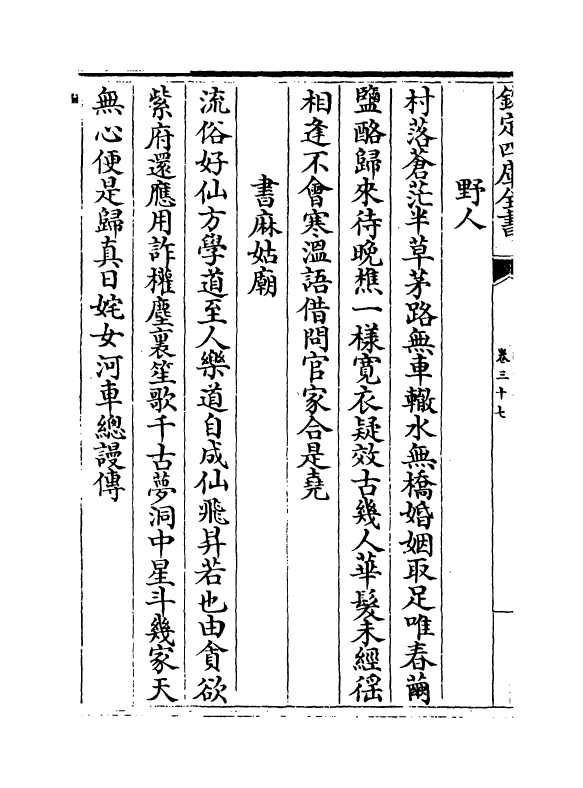 欽定四庫全書
卷三十七
野人
村落蒼茫半草茅路無車轍水無橋婚姻取足唯春繭
鹽酪歸來待晚樵一樣寛衣疑效古幾人華髮未經徭
相逢不會寒溫語借問官家合是堯
書麻姑廟
流俗好仙方學道至人樂道自成仙飛昇若也由貪欲
紫府還應用詐權塵裏笙歌千古夢洞中星斗幾家天
無心便是歸真日姹女河車總謾傳